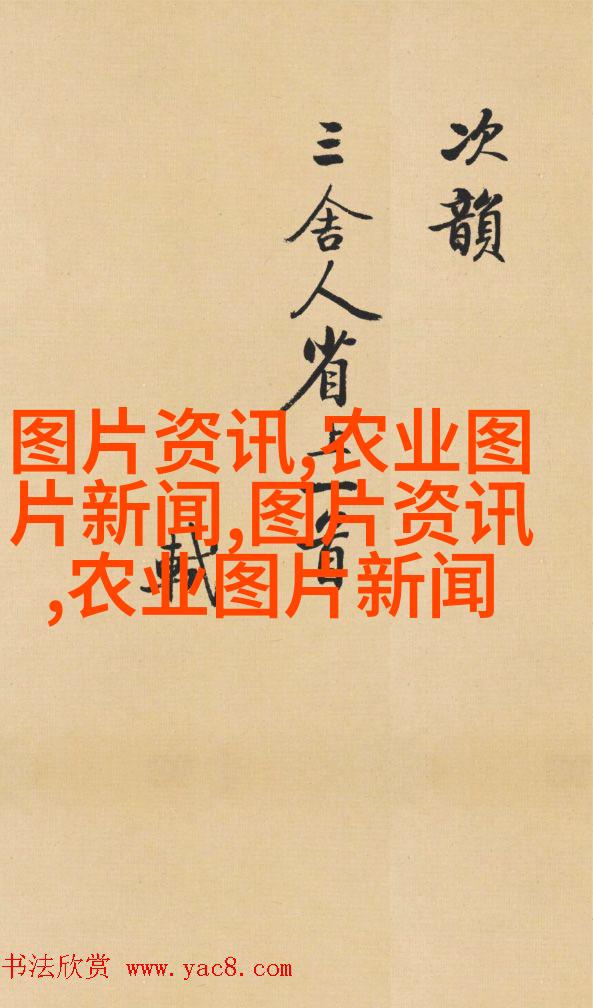 次韻
三舍人省上一首
軾
图片资讯,农业图
片新闻,图片资讯
,农业图片新闻
书法欣赏 www.yac8.com